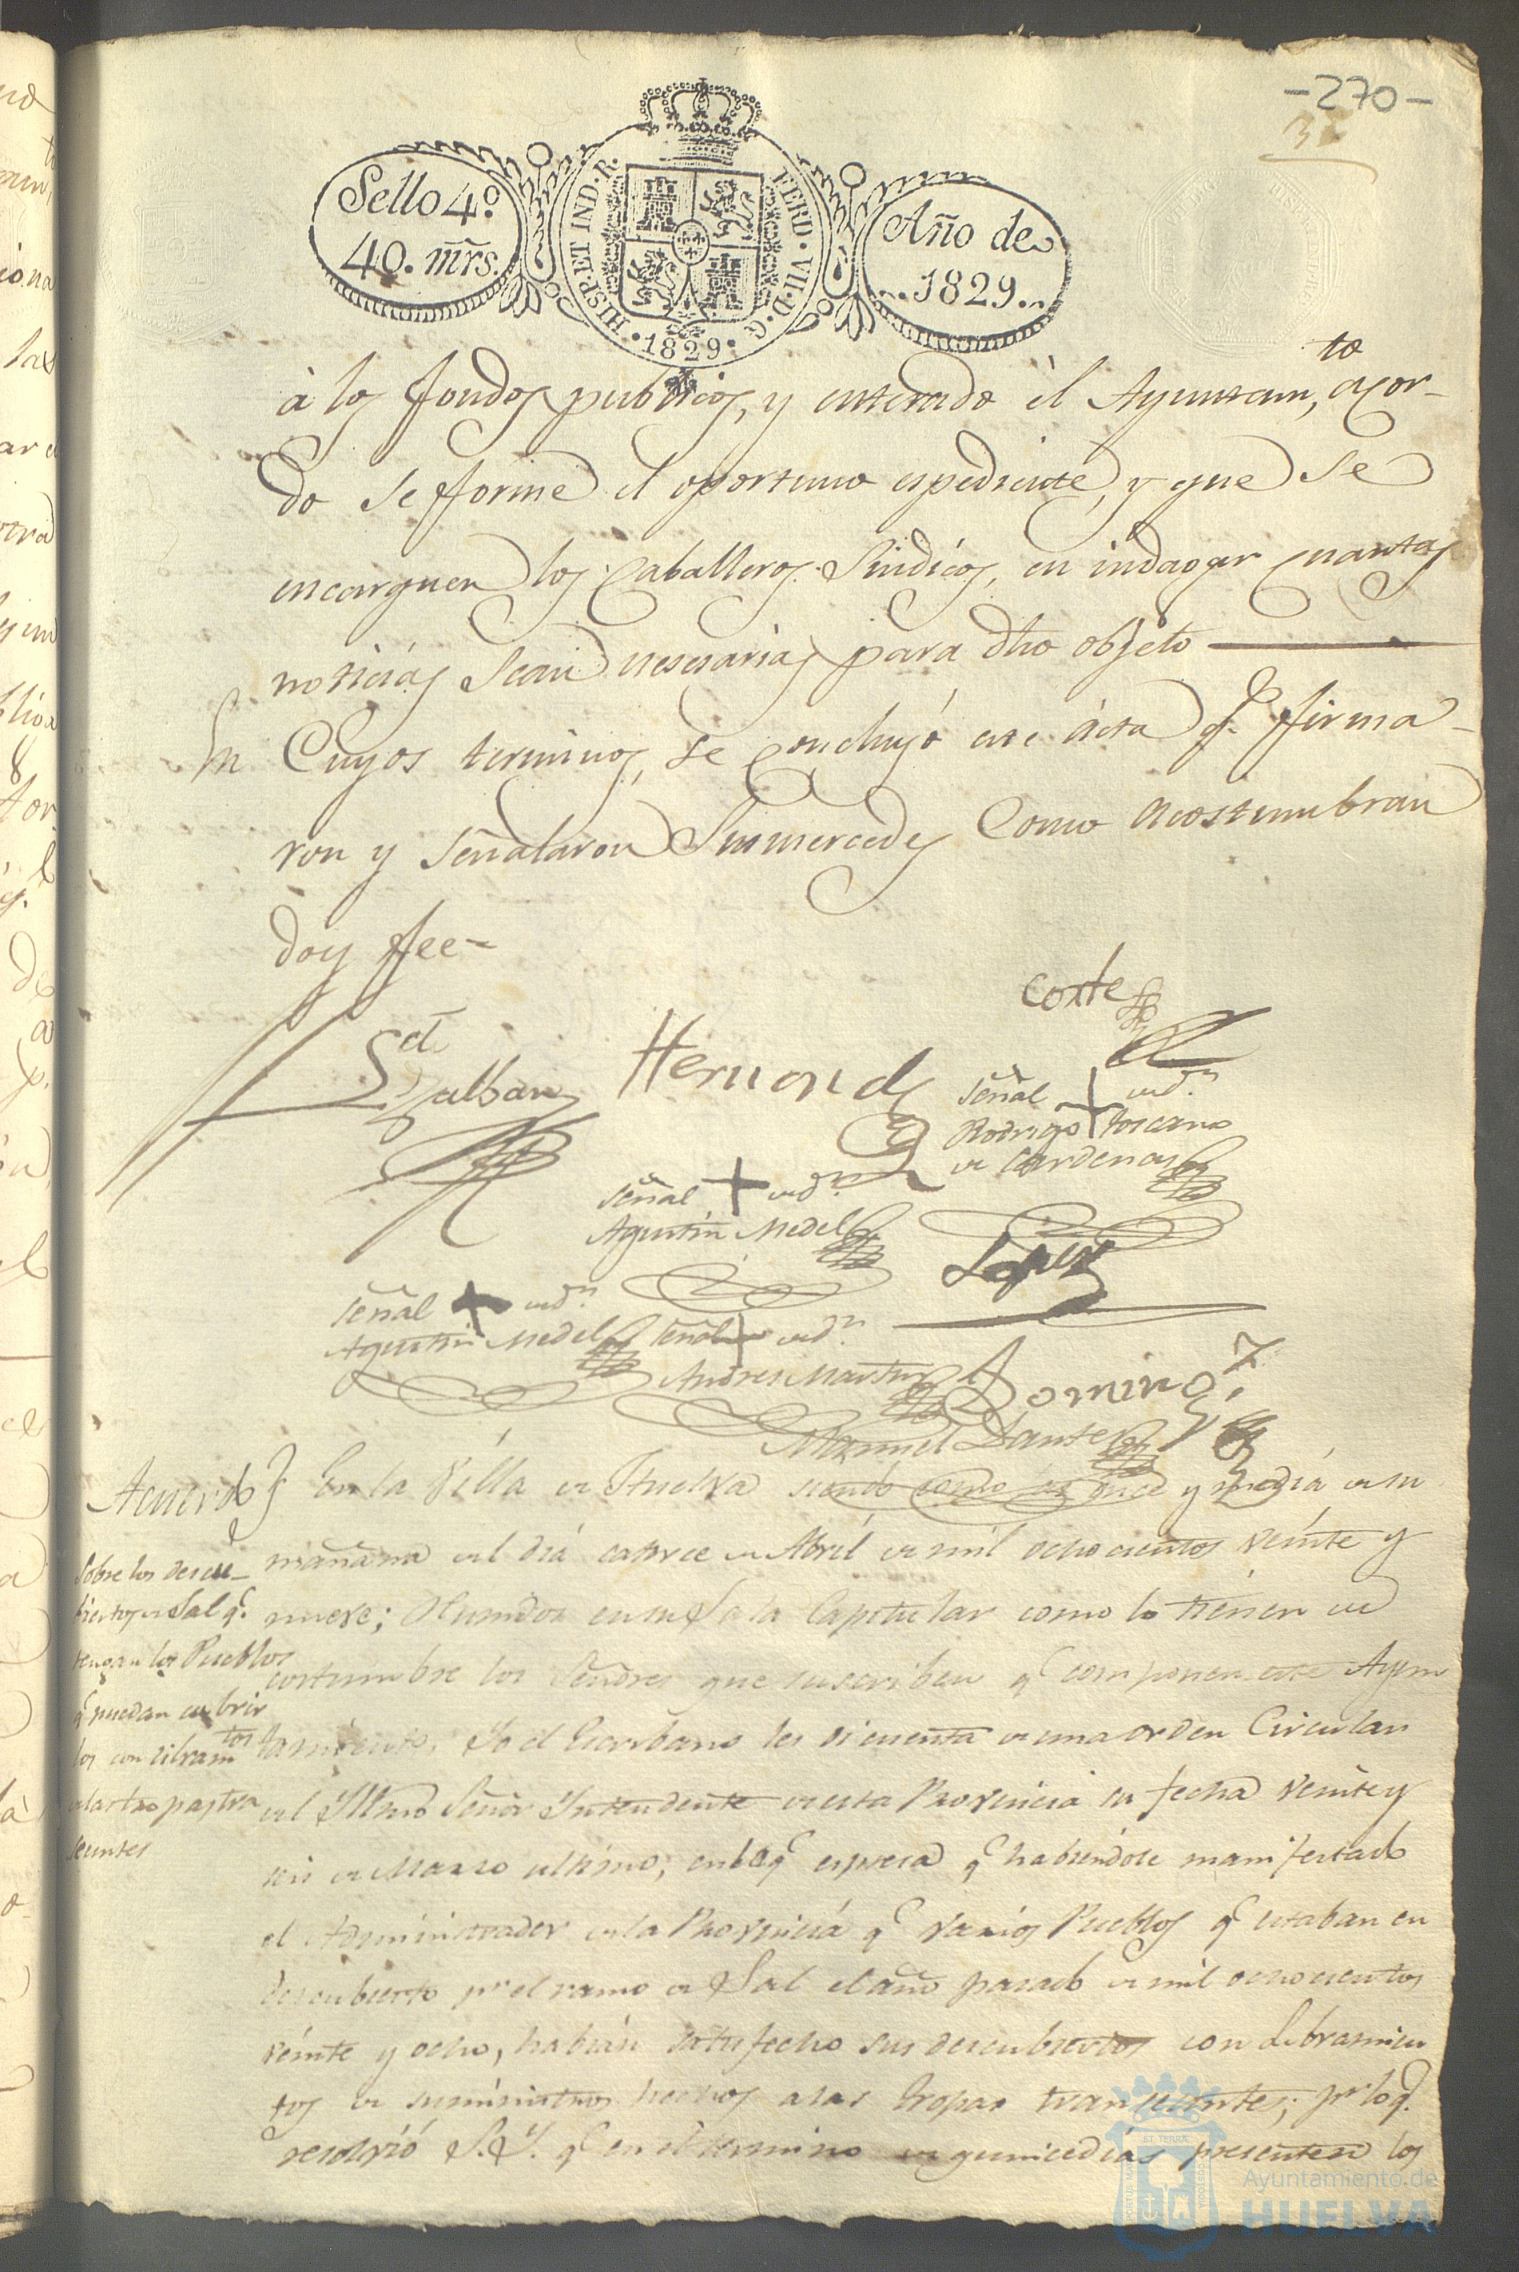 -270-
Sello 4º
40. mrs.
HISP. ET IND. R.
FERD. VII. D. G.
1829
Año de
1829
à los fondos publicos, y enterado èl Ayuntamto, acor-
do se fforme el oportuno espediente, y que se
encarguen los Caballeros Sindicos, en indagar cuantas
noticias sean nesesarias para dho objeto
En Cuyos terminos, se concluyó este ácta q.e ffirma-
ron y señalaron Susmercedes Como acostumbran
doy ffee-
Galban
Hernandz
Cortes
señal + de Dn.
Rodrigo Toscano
de Cardenas
señal + de Dn.
Agustin Medel
Lopez
señal + de Dn.
Agustin Medel
señal + de Dn.
Andres Martin
Domingz
Manuel Dante
Acuerdo
Sobre los descu-
biertos de Sal q.e
tengan los Pueblos
q.e puedan cubrir
los con libramtos
a las tropas tran
seuntes
En la Villa de Huelva siendo como las once y media de su
mañana del dia catorce de Abril de mil ochocientos veinte y
nueve; Reunidos en su Sala Capitular como lo tienen de
costumbre los Señores que suscriben q.e componen este Ayun
tamiento, Yo el Escribano les di cuenta de una orden Circular
del Yllmo Señor Yntendente de esta Provincia su fecha veinte y
seis de Marzo ultimo; en la q.e espresa q.e habiéndose manifestado
el Administrador de la Provincia q.e varios Pueblos q.e estaban en
descubierto pr el ramo de Sal el año pasado de mil ochocientos
veinte y ocho, habian satisfecho sus descubiertos con Libramien
tos de suministros hechos a las tropas transeuntes; pr lo q.e
resolvió S.Y. q.e en el termino de quince dias presenten los
Ayuntamiento de
HUELVA